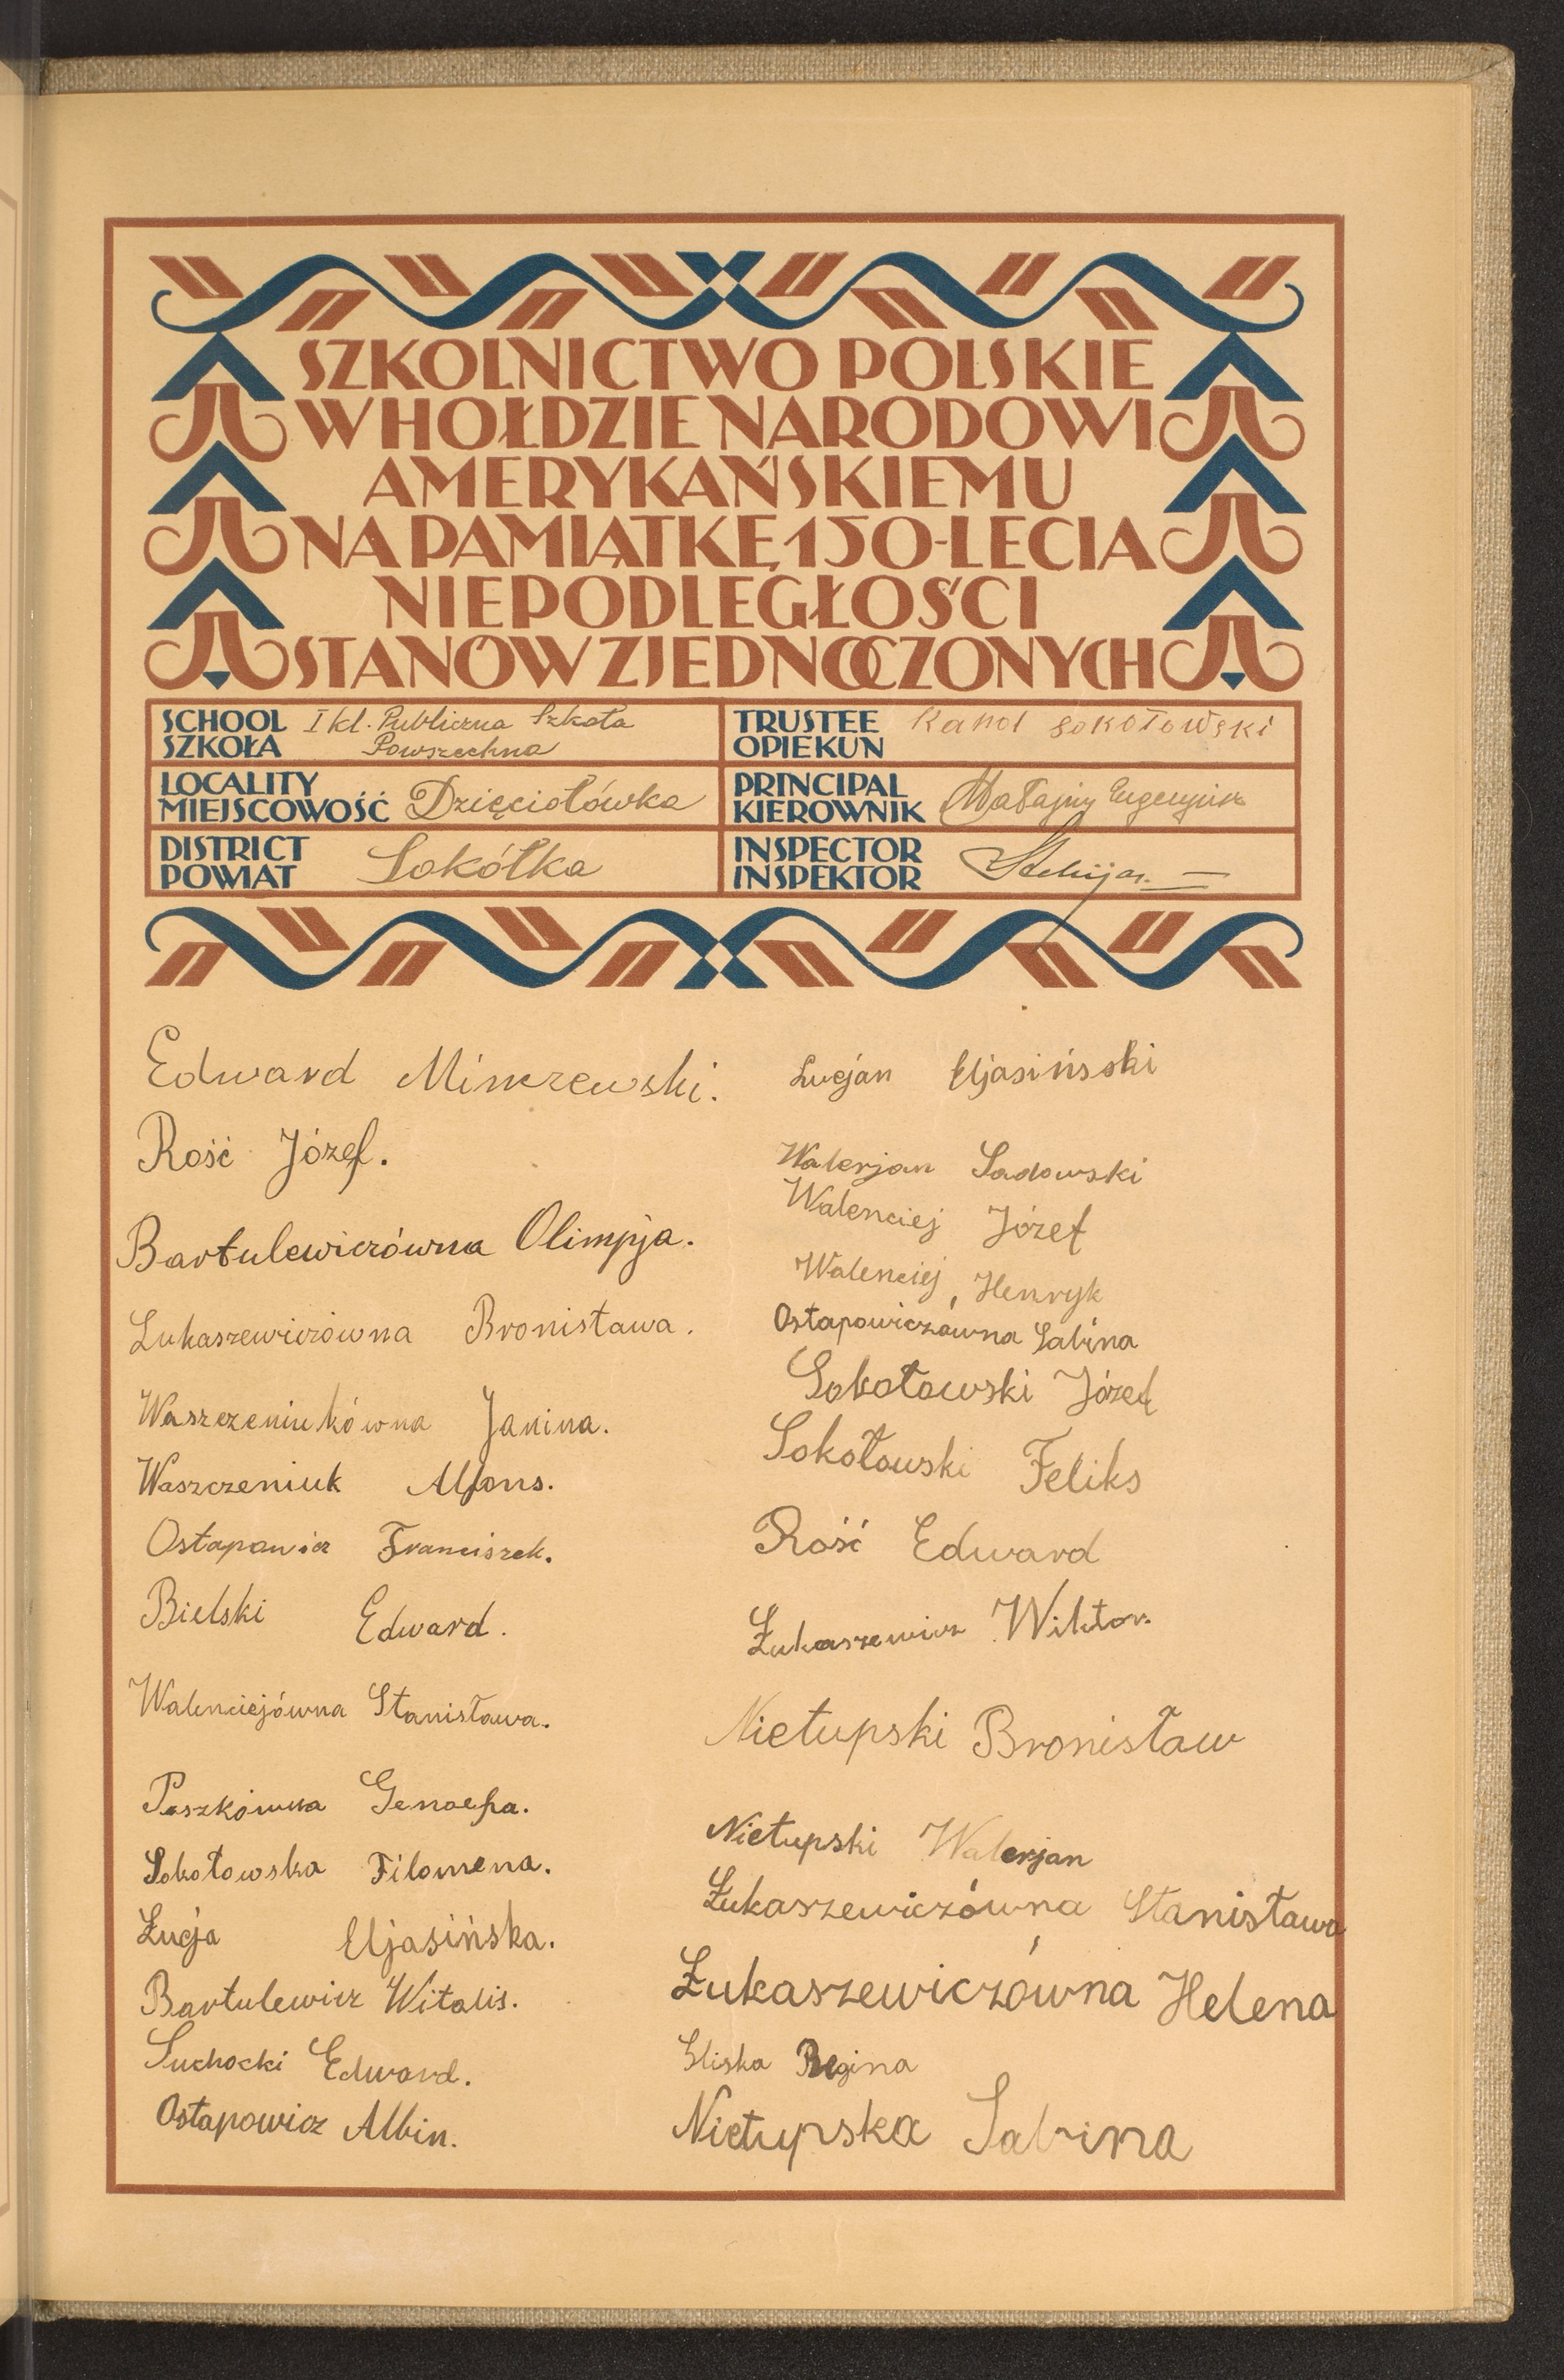 SZKOLNICTWO POLSKIE
W HOŁDZIE NARODOWI
AMERYKAŃSKIEMU
NA PAMIĄTKĘ 150-LECIA
NIEPODLEGŁOŚCI
STANÓW ZJEDNOCZONYCH
SCHOOL
SZKOŁA
I kl. Publiczna Szkoła
Powszechna
TRUSTEE
OPIEKUN
Karol Sokołowski
LOCALITY
MIEJSCOWOŚĆ
Dzięciołówka
PRINCIPAL
KIEROWNIK
Małajny Eugenjusz
DISTRICT
POWIAT
Sokółka
INSPECTOR
INSPEKTOR
Edward Minczewski.
Rość Józef.
Bartulewiczówna Olimpja.
Łukaszewiczówna Bronisława.
Waszczeniukówna Janina.
Waszczeniuk Alfons.
Ostapowicz Franciszek.
Bielski Edward.
Walenciejówna Stanisława.
Paszkówna Genoefa.
Sokołowska Filomena.
Łucja Eljasińska.
Bartulewicz Witalis.
Suchocki Edward.
Ostapowicz Albin.
Lucjan Eljasiński
Walerjan Sadowski
Walenciej Józef
Walenciej, Henryk
Ostapowiczówna Sabina
Sokołowski Józef
Sokołowski Feliks
Rość Edward
Łukaszewicz Wiktor.
Nietupski Bronisław
Nietupski Walerjan
Łukaszewiczówna Stanisława
Łukaszewiczówna Helena
Gliska Regina
Nietupska Sabina